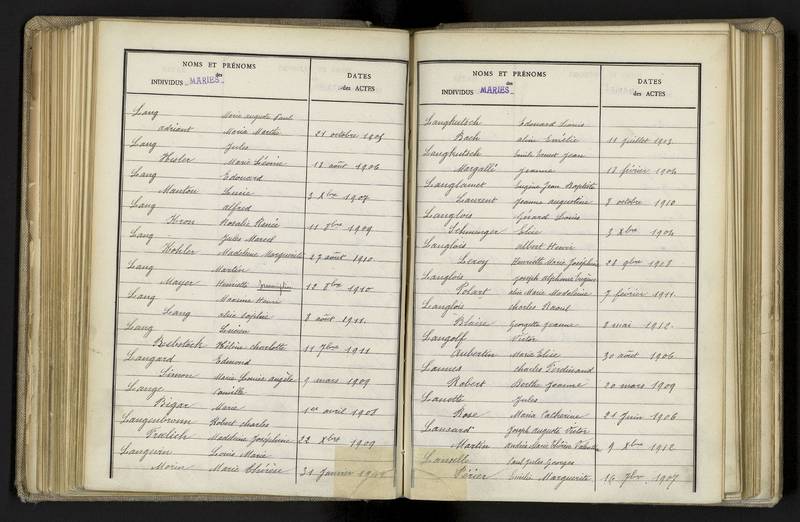 NOMS ET PRÉNOMS
des
INDIVIDUS MARIES
DATES
des ACTES
Lang Marie auguste Paul
adriant Maria Marthe 21 octobre 1905
Lang Jules
Marie Léonie 18 août 1906
Lang Edouard
Manton Lucie 3 Xbre 1907
Lang alfred
Kron Rosalie Renée 11 8bre 1909
Lang Jules Marcel
Kohler Madeleine Marguerite 27 août 1910
Lang Martin
Mayer Henriette 12 8bre 1910
Lang Maxime Henri
Lang alice Sophie 8 août 1911.
Lang Lucien
Hélène charlotte 11 7bre 1911
Langard Edmond
Simon Marie Louise angèle 9 mars 1909
Lange Camille
Bigar Marie 1er avril 1908
Langenbronn Robert charles
Fralich Madeleine Joséphine 22 Xbre 1909
Languin Louis Marie
Morin Marie Thérèse 31 Janvier
NOMS ET PRÉNOMS
des
INDIVIDUS MARIES
DATES
des ACTES
Langkutsch Edouard Louis
Bach aline Emélie 11 Juillet 1903
Langkutsch Emile Ernest Jean
Margalli Jeanne 13 février 1904
Langlamet Eugène Jean Baptiste
Laurent Jeanne augustine 8 octobre 1910
Langlois Gérard Louis
Schminger Elise 3 Xbre 1904
Langlois albert Henri
Leroy Henriette Marie Joséphine 28 9bre 1908
Langlois Joseph alphonse Eugène
Potart aline Marie Madeleine 7 février 1911.
Langlois charles Raoul
Blaise Georgette Jeanne 8 mai 1912.
Langolf Victor
Aubertin Maria Elise 30 août 1906
Lannes charles Ferdinand
Robert Berthe Jeanne 20 mars 1909
Lanotte Jules
Rose Maria Catherine 21 Juin 1906
Lansard Joseph auguste Victor
Martin andrée Marie Thérèse Valentine 9 Xbre 1912
Lanselle Paul Jules Georges
Périer Emilie Marguerite 14 7bre 1907